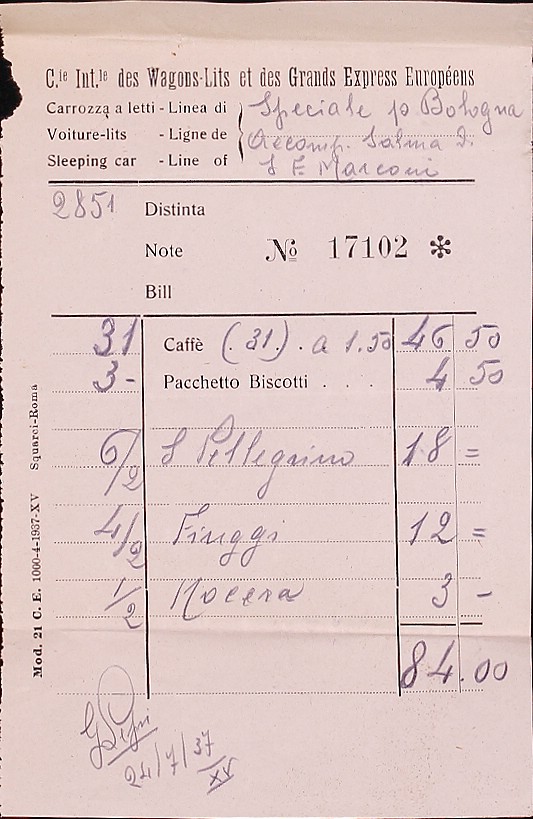 C.ie Int.le des Wagons-Lits et des Grands Express Européens
Carrozza a letti - Linea di
Voiture-lits - Ligne de
Sleeping car - Line of
Speciale p Bologna
Accomp. Salma di
S E Marconi
2851 Distinta
Note No 17102 *
Bill
31 Caffè (.31.) . a 1.50 46 50
3- Pacchetto Biscotti . . . 4 50
6/2 S Pellegrino 18 =
4/2 Fiuggi 12 =
1/2 Nocera 3 -
84.00
24/7/37
XV
Mod. 21 C. E. 1000-4-1937-XV Squarci-Roma